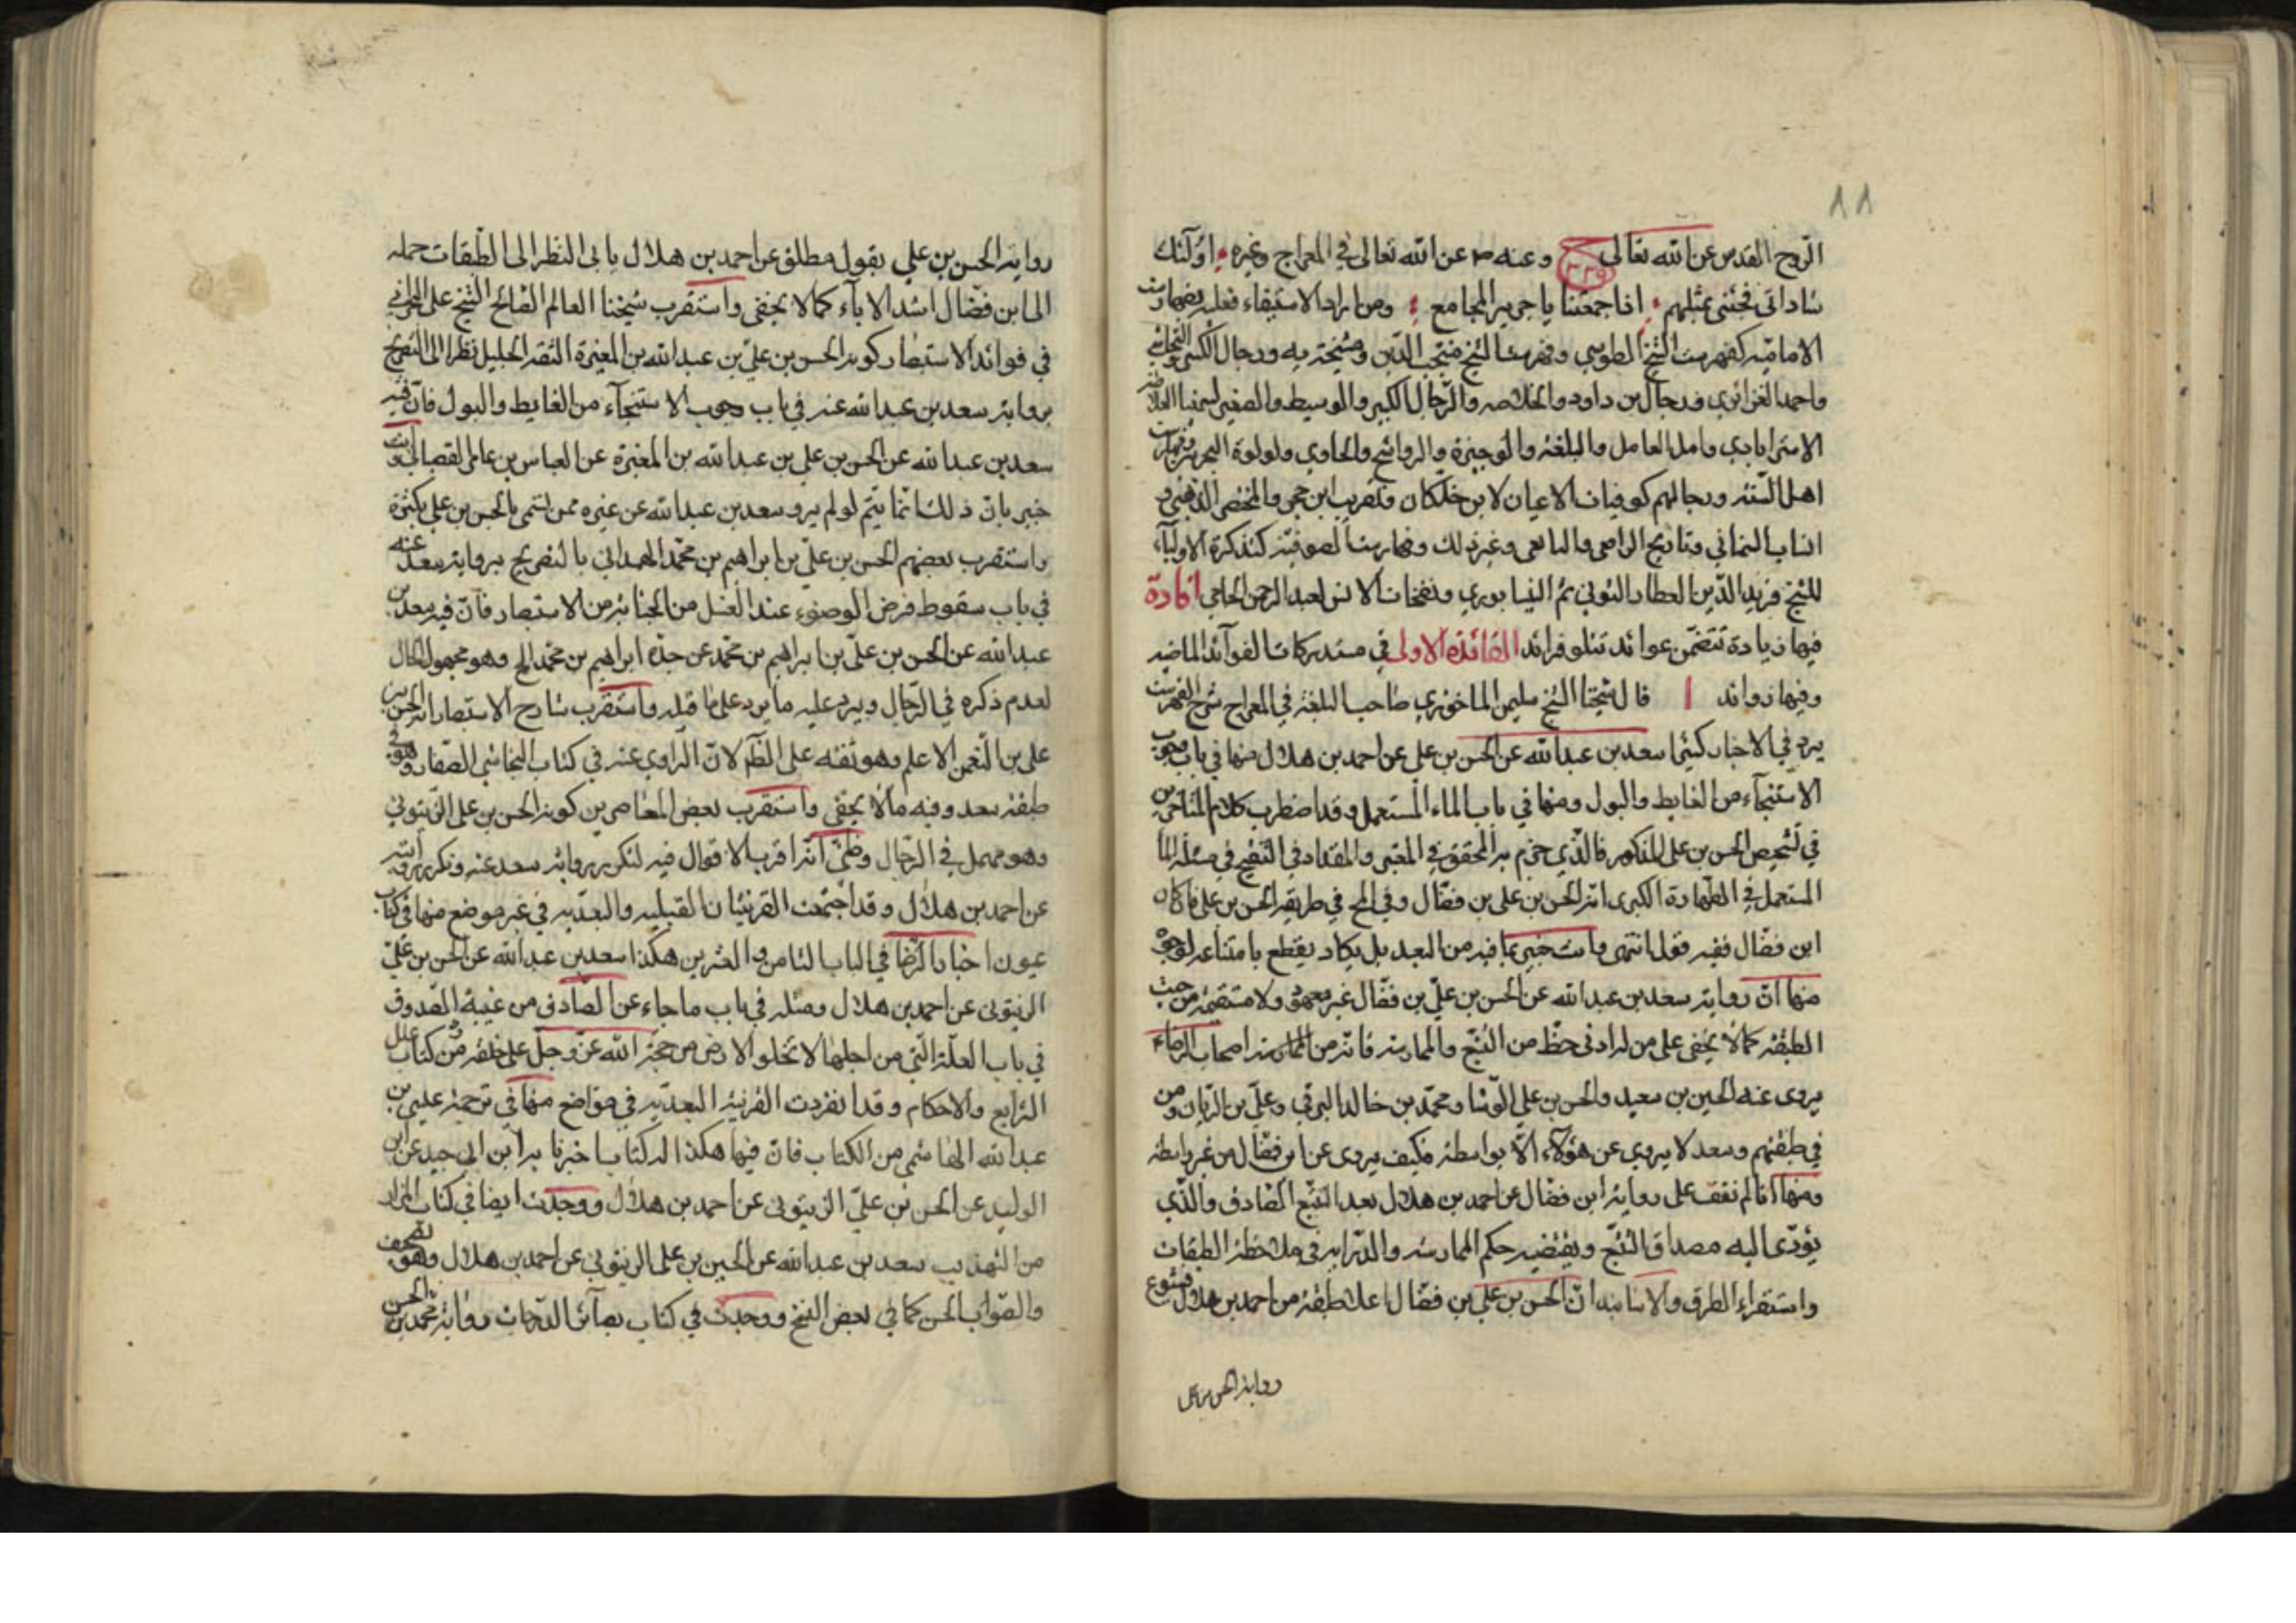 ١١
الروح القدس عن الله تعالى ح ٣٣٥ وعنه ص عن الله تعالى في المعراج وغيره اولئك
ساداتي فجئني بمثلهم اذا جمعتنا يا جرير المجامع ومن اراد الاستيفاء فعليه بفهارست
الامامية كفهرست الشيخ الطوسي وفهرست الشيخ منتجب الدين ومشيخة يه ورجال الكشي والنجاشي
واحمد الغزائري ورجال بن داود والخلاصه والرجال الكبير والوسيط والصغير لميرزا
الاسترابادي وامل العامل والبلغة والوجيزة والرواشح والحاوي ولولوة البحرين وفهارست
اهل السنة ورجالهم كوفيات الاعيان لابن خلكان وتقريب ابن حجر والمختصر للذهبي و
انساب السمعاني وتاريخ الرافعي واليافعي وغير ذلك وفهارست الصوفية كتذكرة الاولياء
للشيخ فريد الدين العطار التوني ثم النيسابوري ونفحات الانس لعبد الرحمن الجامي افادة
فيها زيادة تتضمن عوائد تتلو فرائد الفائدة الاولى في مستدركات الفوآئد الماضيه
وفيها زوائد ا قال شيخنا الشيخ سليمن الماحوزي صاحب البلغة في المعراج شرح الفهرست
يرد في الاخبار كثيرا سعد بن عبد الله عن الحسن بن علي عن احمد بن هلال منها في باب وجوب
الاستنجآء من الغايط والبول ومنها في باب الماء المستعمل وقد اضطرب كلام المتاخرين
في تشخيص الحسن بن علي المذكور فالذي جزم به المحقق في المعتبر والمقداد في التنقيح في مسئلة الماء
المستعمل في الطهارة الكبرى انه الحسن بن علي بن فضال وفي المح في طريقه الحسن بن علي فان كان
ابن فضال ففيه قول انتهى وانت خبير بما فيه من البعد بل يكاد يقطع بامتناعه لوجوه
منها ان رواية سعد بن عبد الله عن الحسن بن علي بن فضال غير معهودة ولا مستقيمة من حيث
الطبقة كما لا يخفى على من له ادنى حظ من التتبع والممارسة فانه من اصحاب الرضاء
يروى عنه الحسين بن سعيد والحسن بن علي الوشا ومحمد بن خالد البرقي وعلي بن الريان ومن
في طبقتهم وسعد لا يروي عن هؤلآء الا بواسطة فكيف يروى عن ابن فضال من غير واسطة
ومنها انا لم نقف على رواية ابن فضال عن احمد بن هلال بعد التتبع الصادق والذي
يؤدي اليه مصداق التتبع ويقتضيه حكم الممارسة والدراية في ملاحظة الطبقات
واستقراء الطرق والاسانيد ان الحسن بن علي بن فضال اعلا طبقة من احمد بن هلال فتنوع
رواية الحسن بن علي
رواية الحسن بن علي بقول مطلق عن احمد بن هلال يابى النظر الى الطبقات حمله
الى ابن فضال اشد الابآء كما لا يخفى واستقرب شيخنا العالم الصالح الشيخ علي البحراني
في فوائد الاستبصار كونه الحسن بن علي بن عبد الله بن المغيرة الثقة الجليل نظرا الى التصريح
برواية سعد بن عبد الله عنه في باب وجوب الاستنجآء من الغايط والبول فان فيه
سعد بن عبد الله عن الحسن بن علي بن عبد الله بن المغيرة عن العباس بن عامر القصباني وانت
خبير بان ذلك انما يتم لو لم يرو سعد بن عبد الله عن غيره ممن تسمى بالحسن بن علي بكثرة
واستقرب بعضهم الحسن بن علي بن ابراهيم بن محمد الهمداني بالتصريح برواية سعد عنه
في باب سقوط فرض الوضوء عند الغسل من الجنابة من الاستبصار فان فيه سعد بن
عبد الله عن الحسن بن علي بن ابراهيم بن محمد عن جده ابراهيم بن محمد الخ وهو مجهول الحال
لعدم ذكره في الرجال ويرد عليه ما يرد على ما قبله واستقرب شارح الاستبصار انه الحسن بن
علي بن النعمن الاعلم وهو ثقه على الظم لان الراوي عنه في كتاب النجاشي الصفار وهو في
طبقة سعد وفيه ما لا يخفى واستقرب بعض المعاصرين كونه الحسن بن علي الزيتوني
وهو مهمل في الرجال وظني انه اقرب الاقوال فيه لتكرر رواية سعد عنه وتكرر روايته
عن احمد بن هلال وقد اجتمعت القرينتان القبليه والبعديه في غير موضع منها في كتاب
عيون اخبار الرضا في الباب الثامن والعشرين هكذا سعد بن عبد الله عن الحسن بن علي
الزيتونى عن احمد بن هلال ومثله في باب ما جاء عن الصادق من غيبة الصدوق
في باب العلة التي من اجلها لا تخلو الارض من حجة الله عز وجل على خلقه من كتاب علل
الشرايع والاحكام وقد انفردت القرينة البعدية في مواضع منها في ترجمة عيسى بن
عبد الله الهاشمي من الكتاب فان فيها هكذا له كتاب اخبرنا به ابن ابي جيد عن ابن
الوليد عن الحسن بن علي الزيتونى عن احمد بن هلال ووجدت ايضا في كتاب المزار
من التهذيب سعد بن عبد الله عن الحسين بن علي الزيتوني عن احمد بن هلال وهو تصحيف
والصواب الحسن كما في بعض النسخ ووجدت في كتاب بصآئر الدرجات رواية محمد بن الحسن